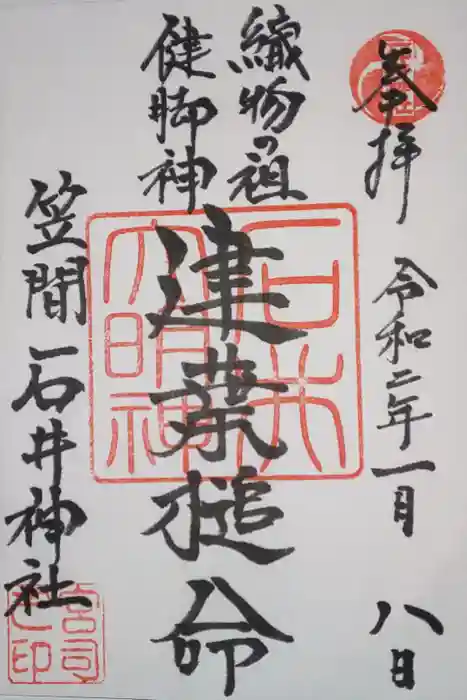 奉拝
令和二年一月八日
織物の祖
健脚神
建葉槌命
石井大明神
笠間石井神社
宮司之印